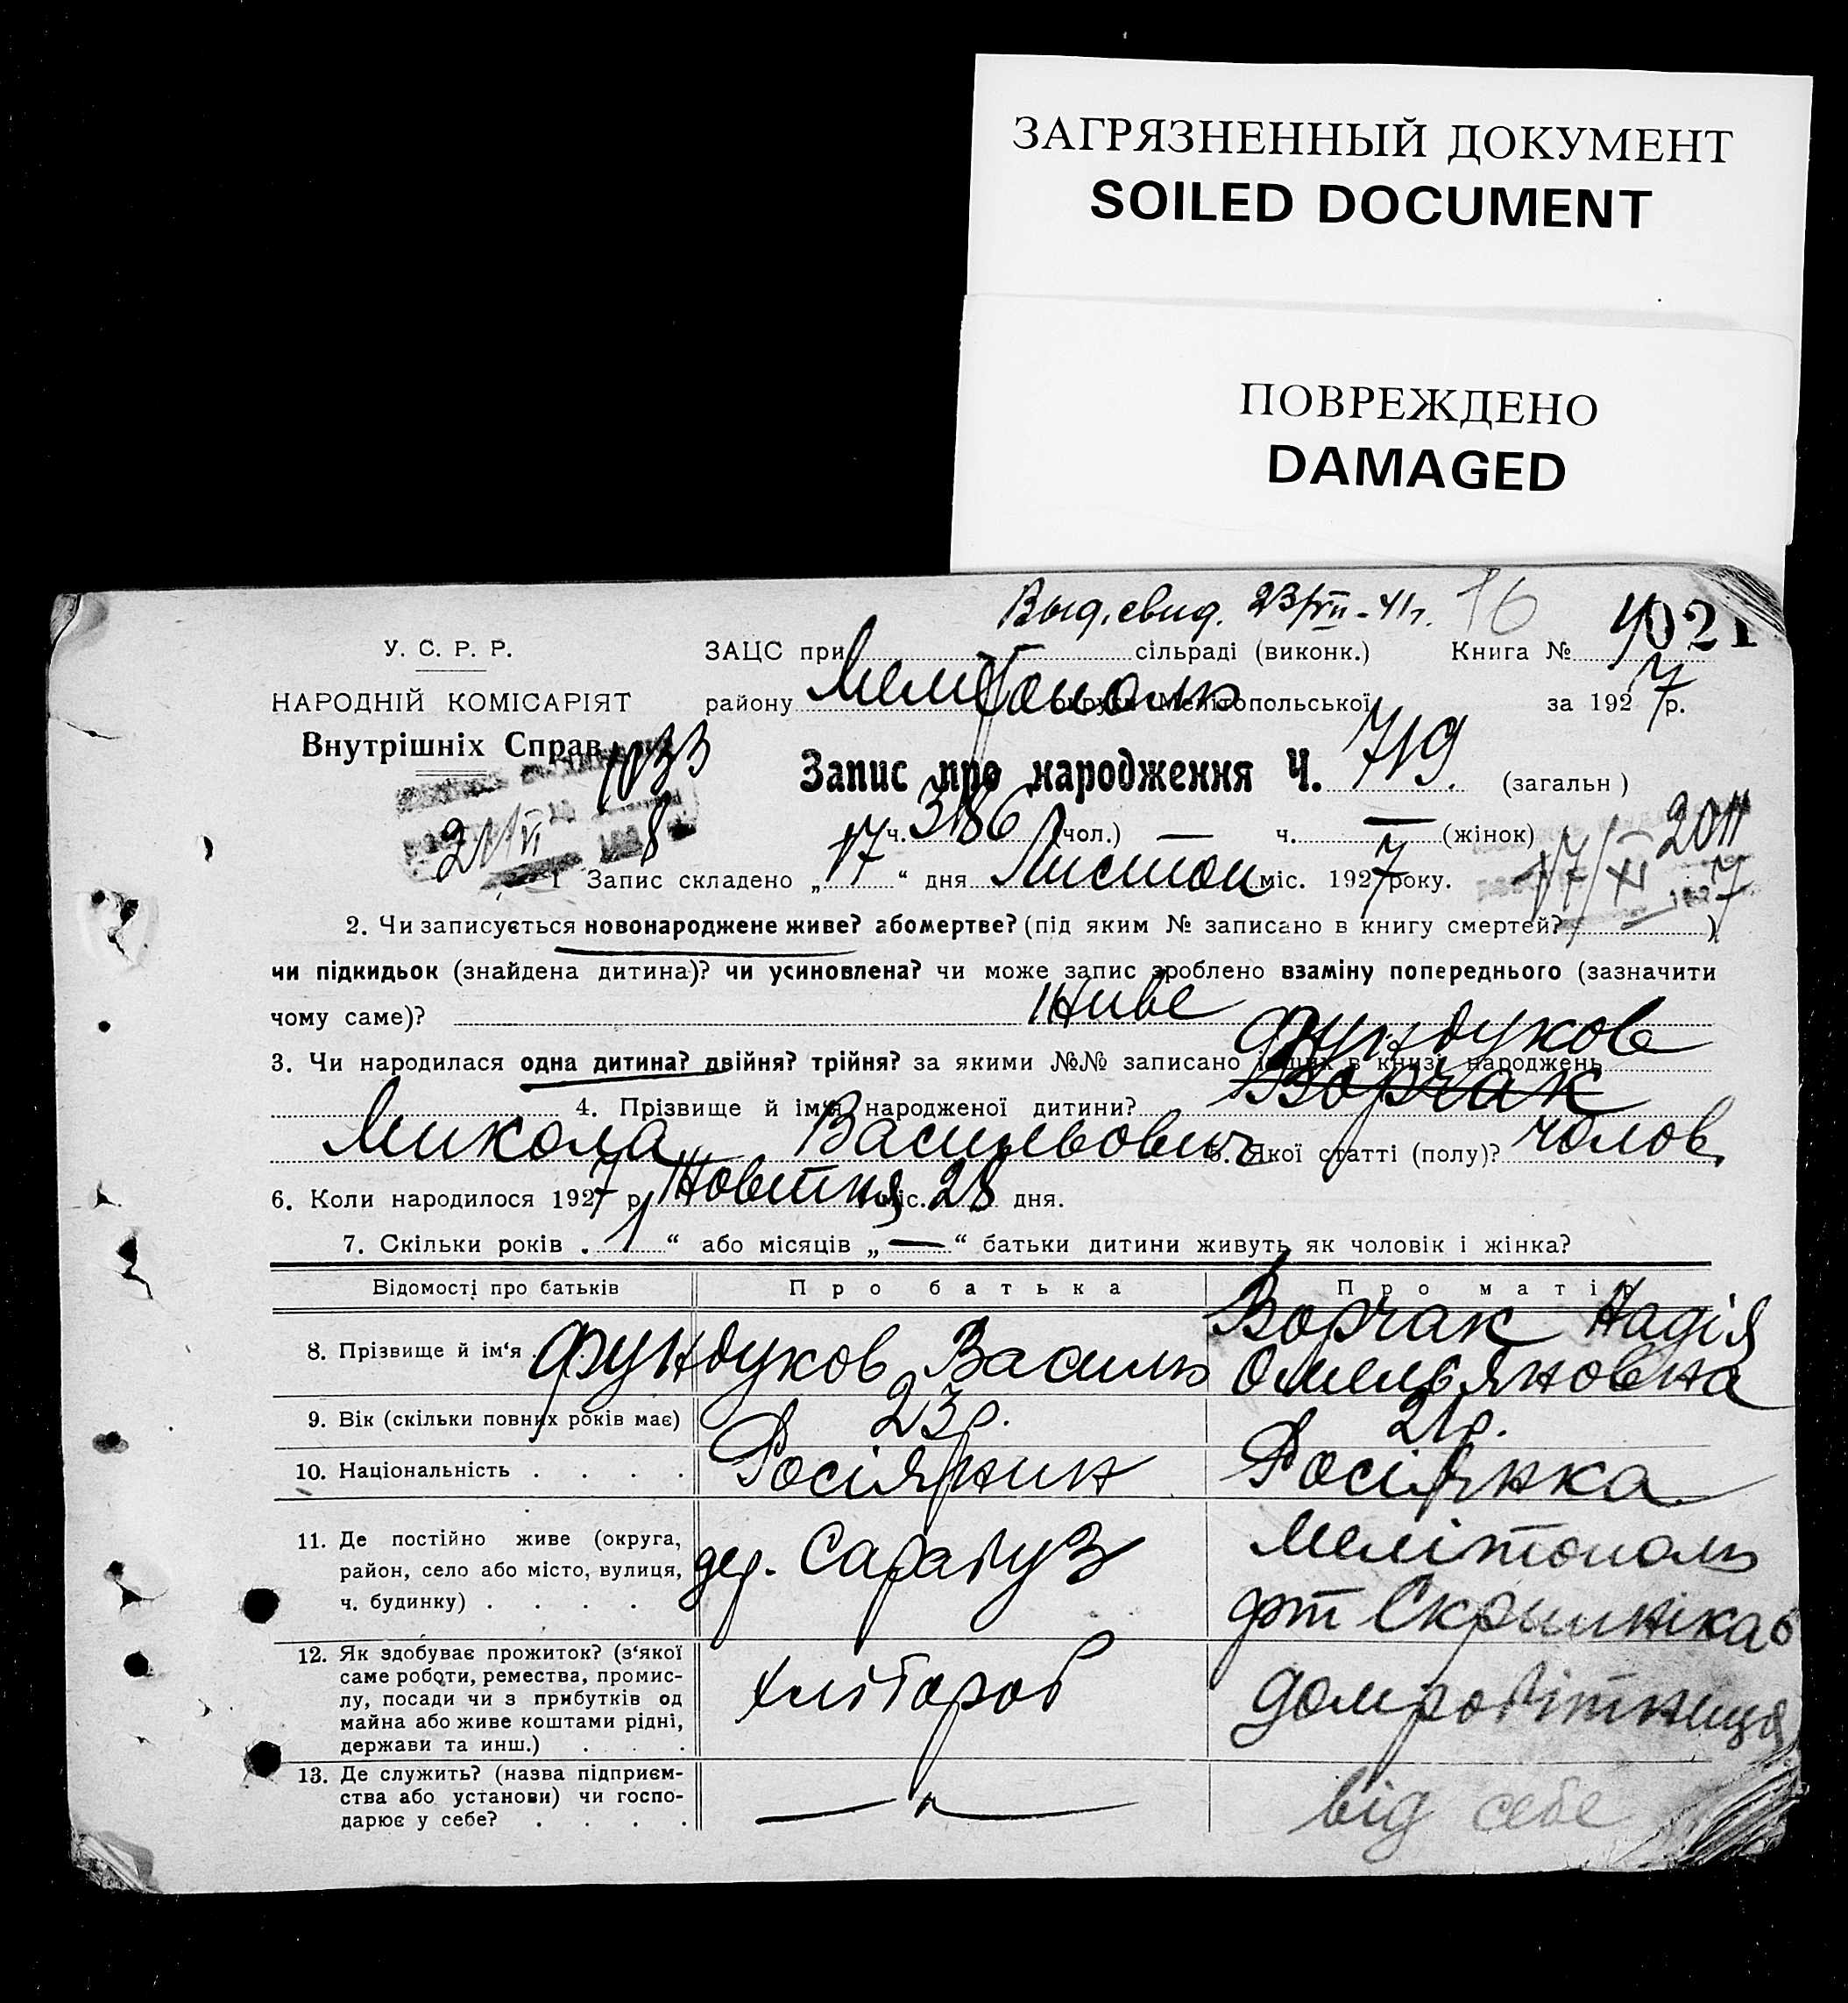 ЗАГРЯЗНЕННЫЙ ДОКУМЕНТ
SOILED DOCUMENT
ПОВРЕЖДЕНО
DAMAGED
Выд. свид. 23/VII-41г. 16
У. С. Р. Р. ЗАЦС при сільраді (виконк.) Книга № 1021
НАРОДНІЙ КОМІСАРІЯТ району Мелітополь округи Мелітопольської за 1927 р.
Внутрішніх Справ 1033
Запис про народження Ч. 719. (загальн)
21/VI 8 ч. 386 (чол.) — ч. — (жінок) 2011
1 Запис складено „17“ дня Листоп міс. 1927 року. 17/XI 1927
2. Чи записується новонароджене живе? або мертве? (під яким № записано в книгу смертей? )
чи підкидьок (знайдена дитина)? чи усиновлена? чи може запис зроблено взаміну попереднього (зазначити
чому саме)? Живе
Фундуков
3. Чи народилася одна дитина? двійня? трійня? за якими №№ записано інших в книзі народжень
4. Прізвище й ім'я народженої дитини? Ворчак
Микола Васильович 5. Якої статті (полу)? чолов.
6. Коли народилося 1927 р. Жовтня міс. 28 дня.
7. Скільки років „1“ або місяців „—“ батьки дитини живуть як чоловік і жінка?
Відомості про батьків Про батька Про матір
8. Прізвище й ім'я Фундуков Василь Ворчак Надія Омельяновна
9. Вік (скільки повних років має) 23 р. 21 р.
10. Національність . . . . Росіянин Росіянка
11. Де постійно живе (округа, район, село або місто, вулиця, ч. будинку) . . . . дер. Сарабуз Мелітополь
Скрипніка 6
12. Як здобуває прожиток? (з'якої саме роботи, ремества, промислу, посади чи з прибутків од майна або живе коштами рідні, держави та инш.) . . . хлібороб домробітниця
13. Де служить? (назва підприємства або установи) чи господарює у себе? . . . . —"— від себе